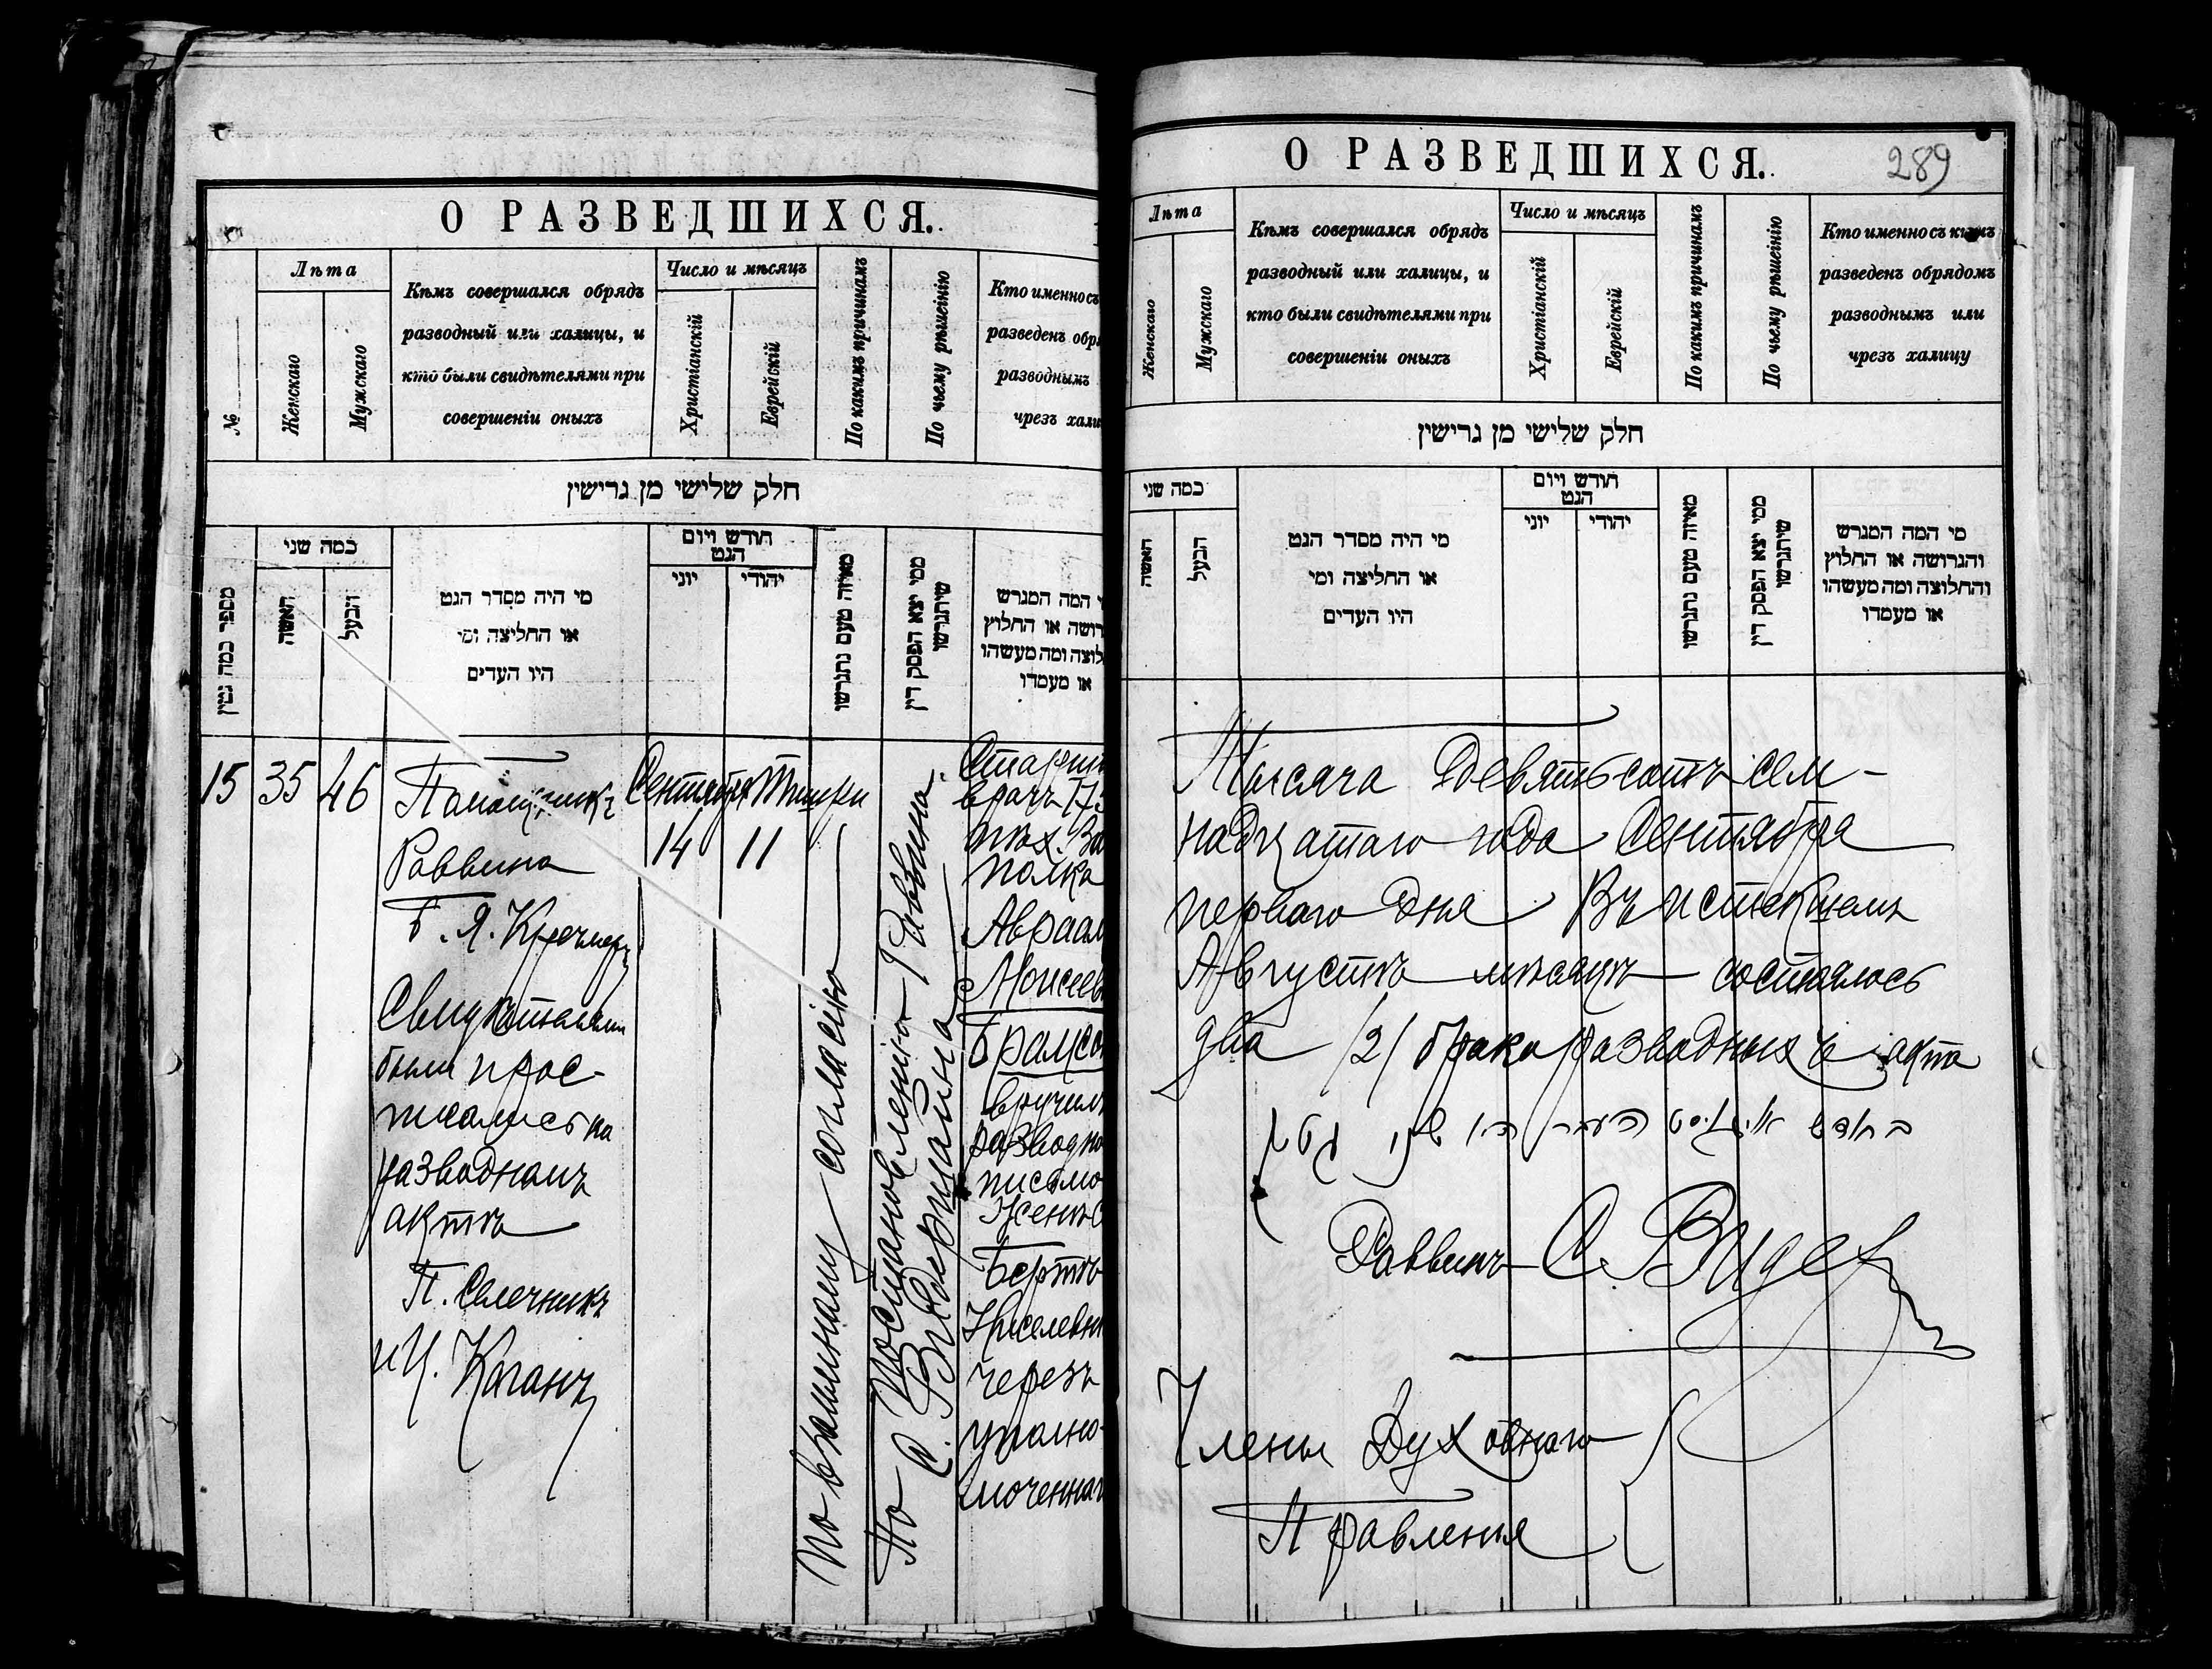 О РАЗВЕДШИХСЯ.
№
Лѣта
Женскаго
Мужскаго
Кѣмъ совершался обрядъ
разводный или халицы, и
кто были свидѣтелями при
совершеніи оныхъ
Число и мѣсяцъ
Христіанскій
Еврейскій
По какимъ причинамъ
По чьему рѣшенію
Кто именно съ
разведенъ обр
разводнымъ
чрезъ хали
חלק שלישי מן גרישין
מספר כמה גטין
כמה שני
האשה
הבעל
מי היה מסדר הגט
או החליצה ומי
היו העדים
חודש ויום
הגט
יוני
יהודי
מאיזה טעם נתגרשו
ממי יצא הפסק דין
שיתגרשו
המה המגרש
רושה או החלוץ
לוצה ומה מעשהו
או מעמדו
15
35
46
Помощникъ
Раввина
Б. Я. Кречмеръ
Свидѣтелями
были и рос-
писались на
разводномъ
актѣ
П. Свечникъ
и Ц. Каганъ
Сентября
14
Тишри
11
По взаимному согласію
По постановленію Раввина
С. Видермана
Старші
врачъ 173
пѣх. За
полка
Авраам
Моисеев
Брамсо
вручилъ
разводно
письмо
женѣ с
Бертѣ
Киселевн
черезъ
уполно-
моченнаг
О РАЗВЕДШИХСЯ.
289
Лѣта
Женскаго
Мужскаго
Кѣмъ совершался обрядъ
разводный или халицы, и
кто были свидѣтелями при
совершеніи оныхъ
Число и мѣсяцъ
Христіанскій
Еврейскій
По какимъ причинамъ
По чьему рѣшенію
Кто именно съ кѣмъ
разведенъ обрядомъ
разводнымъ или
чрезъ халицу
חלק שלישי מן גרישין
כמה שני
האשה
הבעל
מי היה מסדר הגט
או החליצה ומי
היו העדים
חודש ויום
הגט
יוני
יהודי
מאיזה טעם נתגרשו
ממי יצא הפסק דין
שיתגרשו
מי המה המגרש
והגרושה או החלוץ
והחלוצה ומה מעשהו
או מעמדו
Тысяча девятьсотъ сем-
надцатаго года Сентября
перваго дня Въ истекшемъ
Августѣ мѣсяцѣ состоялось
два /2/ бракоразводныхъ акта
בחודש אויגוסט העבר היו שני גטין
Раввинъ С. Видер
Члены Духовнаго
Правленія